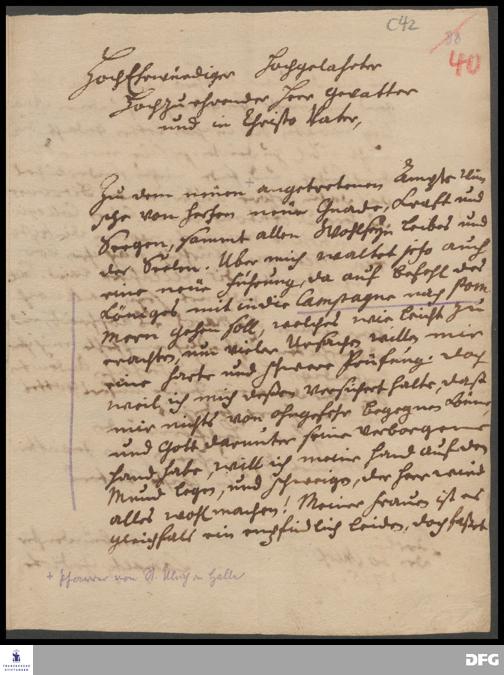 C42
88
40
HochEhrwürdiger Hochgelahrter
Hochzuehrender Herr gevatter
und in Christo Vater,
Zu dem neuen + angetretenen Ampte wün
sche von Herzen neue Gnade, Krafft und
Seegen, sammt allen Wohlseyn Leibes und
der Seelen. Uber mich waltet jetzo auch
eine neue Führung, da auf Befehl des
Königes mit in die Campagne nach Pom
mern gehen soll, welches wie leicht zu
erachten, um vieler Ursachen willen mir
eine harte und schwere Prüfung. Doch
weil ich mich deßen versichert halte, daß
mir nichts von ohngefehr begegnen könne,
und Gott darunter seine verborgene
Hand habe, will ich meine Hand auf den
Mund legen, und schweigen, der Herr wird
alles wohl machen! Meiner Frauen ist es
gleichfals ein empfindlich Leiden, doch faßet
+ Pfarrer von St. Ulrich in Halle
FRANCKESCHE STIFTUNGEN
DFG